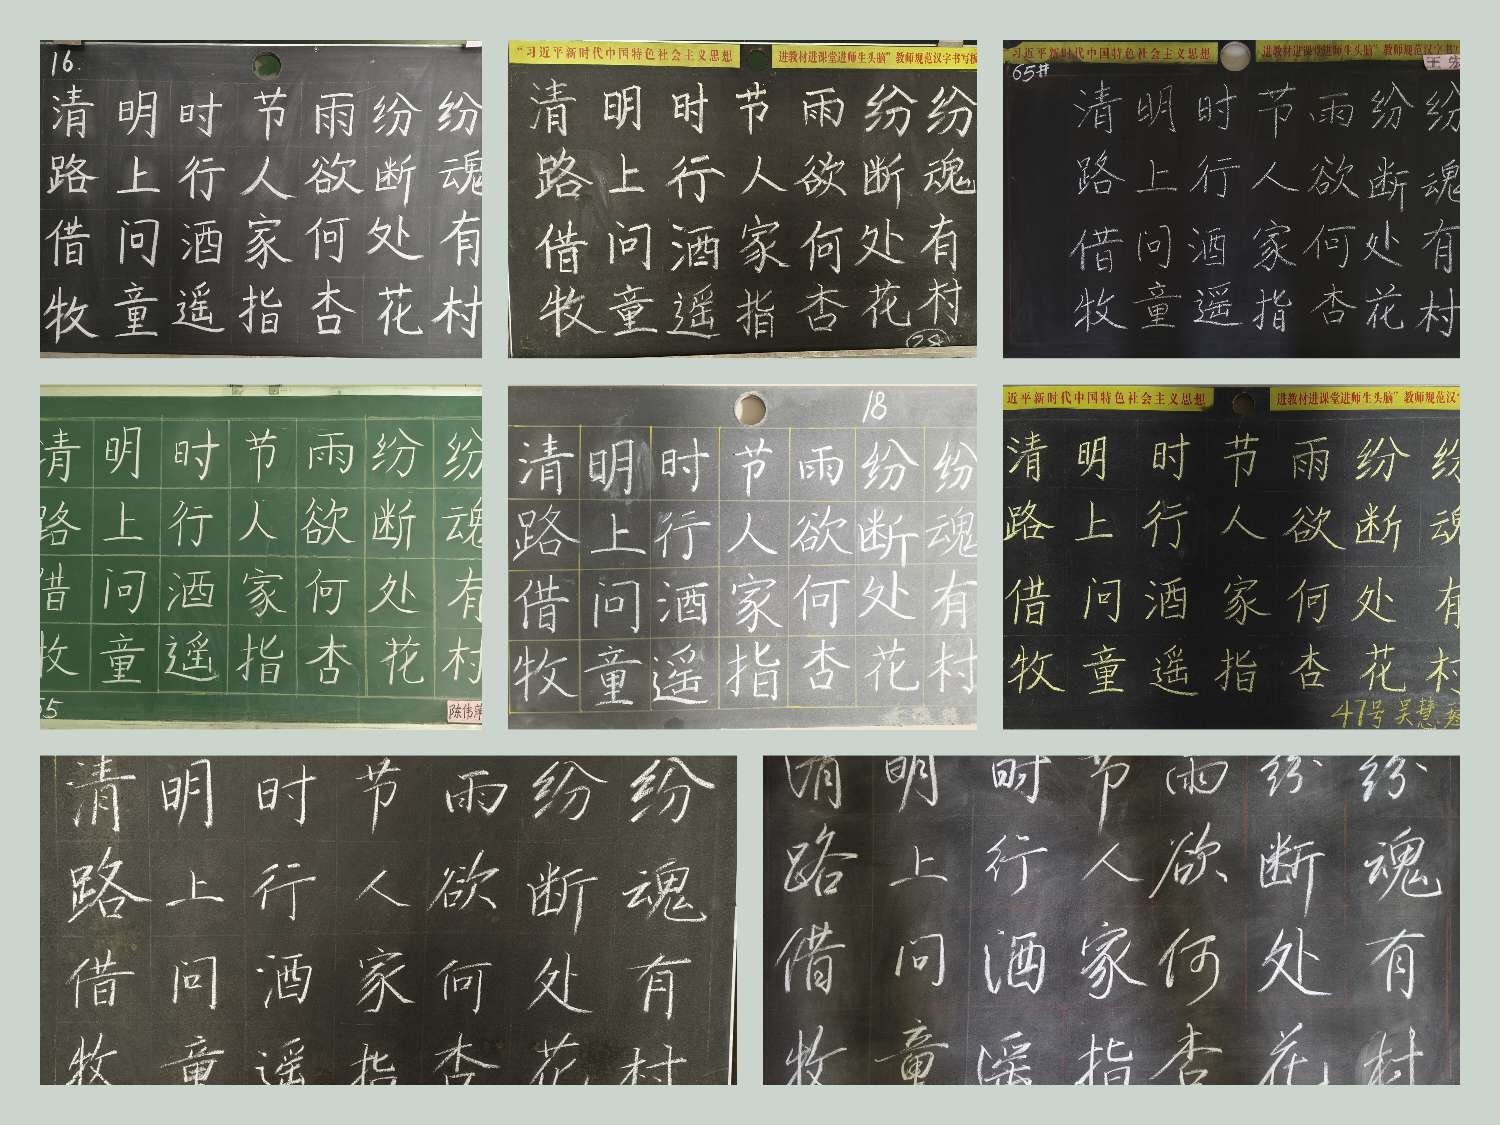 16.
清明时节雨纷纷
路上行人欲断魂
借问酒家何处有
牧童遥指杏花村
“习近平新时代中国特色社会主义思想
进教材进课堂进师生头脑”教师规范汉字书写
清明时节雨纷纷
路上行人欲断魂
借问酒家何处有
牧童遥指杏花村
28
习近平新时代中国特色社会主义思想
进教材进课堂进师生头脑”教师规范汉字书写
65#
清明时节雨纷纷
路上行人欲断魂
借问酒家何处有
牧童遥指杏花村
清明时节雨纷纷
路上行人欲断魂
借问酒家何处有
牧童遥指杏花村
55
陈伟萍
18
清明时节雨纷纷
路上行人欲断魂
借问酒家何处有
牧童遥指杏花村
近平新时代中国特色社会主义思想
进教材进课堂进师生头脑”教师规范汉
清明时节雨纷纷
路上行人欲断魂
借问酒家何处有
牧童遥指杏花村
47号 吴慧
清明时节雨纷纷
路上行人欲断魂
借问酒家何处有
牧童遥指杏花村
清明时节雨纷纷
路上行人欲断魂
借问酒家何处有
牧童遥指杏花村